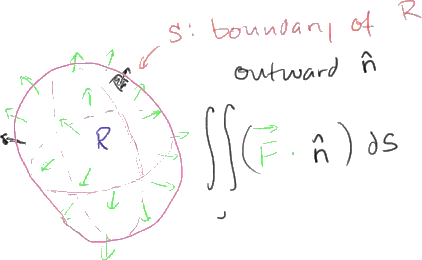 S: boundary of R
outward n̂
R
∬ (F⃗ · n̂) dS